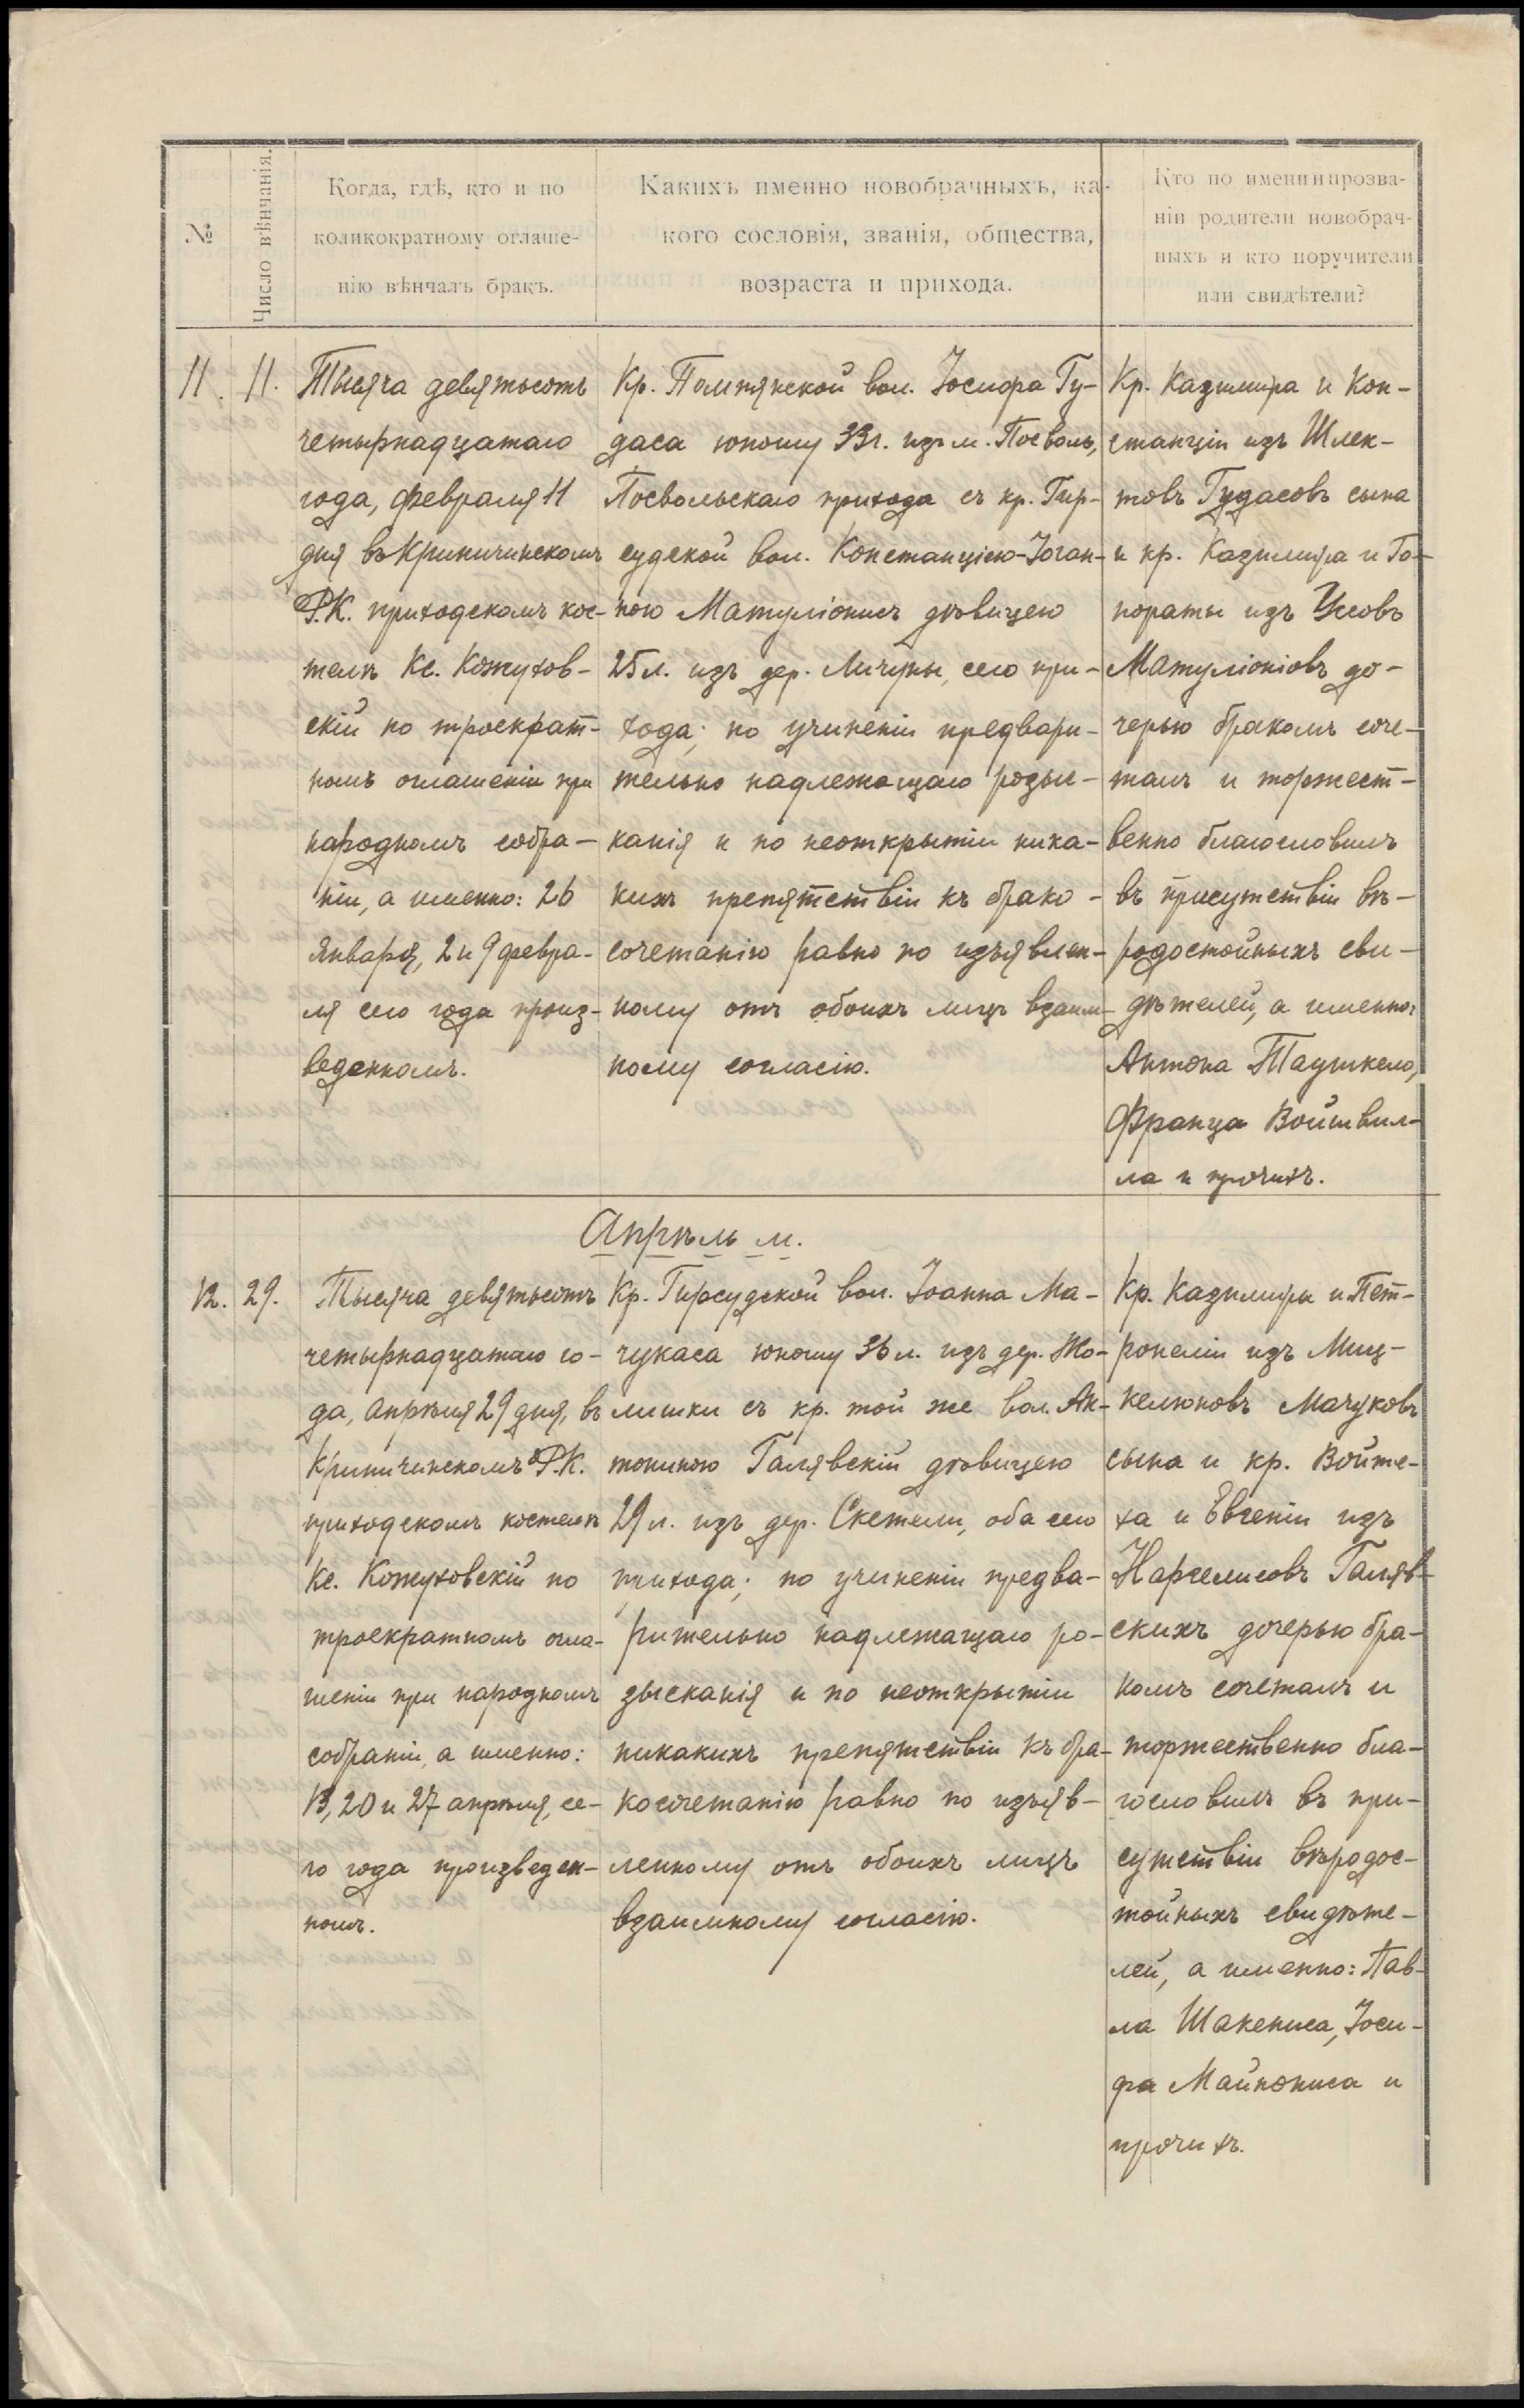 №
Число вѣнчанія.
Когда, гдѣ, кто и по
коликократному оглаше-
нію вѣнчалъ бракъ.
Какихъ именно новобрачныхъ, ка-
кого сословія, званія, общества,
возраста и прихода.
Кто по имени и прозва-
ніи родители новобрач-
ныхъ и кто поручители
или свидѣтели?
11. 11.
Тысяча девятьсотъ
четырнадцатаго
года, февраля 11
дня въ Криничинскомъ
Р.К. приходскомъ кос-
телѣ Кс. Кожухов-
скій по троекрат-
номъ оглашеніи при
народномъ собра-
ніи, а именно: 26
января, 2 и 9 февра-
ля сего года произ-
веденномъ.
Кр. Помпянской вол. Іосифа Гу-
даса юношу 33 г. изъ м. Посволь,
Посвольскаго прихода съ кр. Гир-
судской вол. Констанціею-Іоган-
ною Матуліонисъ дѣвицею
25 л. изъ дер. Личуны, сего при-
хода; по учиненіи предвари-
тельно надлежащаго розыс-
канія и по неоткрытіи ника-
кихъ препятствіи къ брако-
сочетанію равно по изъявлен-
ному отъ обоихъ лицъ взаим-
ному согласію.
Кр. Казимира и Кон-
станціи изъ Шлек-
товъ Гудасовъ сына
и кр. Казимира и Го-
нораты изъ Усовъ
Матуліоніовъ до-
черью бракомъ соче-
талъ и торжест-
венно благословилъ
въ присутствіи вѣ-
родостойныхъ сви-
дѣтелей, а именно:
Антона Таушкело,
Франца Войшвил-
ла и прочихъ.
Апрѣль м.
12. 29.
Тысяча девятьсотъ
четырнадцатаго го-
да, апрѣля 29 дня, въ
Криничинскомъ Р.К.
приходскомъ костелѣ
Кс. Кожуховскій по
троекратномъ огла-
шеніи при народномъ
собраніи, а именно:
13, 20 и 27 апрѣля, се-
го года произведен-
номъ.
Кр. Гирсудской вол. Іоанна Ма-
чукаса юношу 36 л. изъ дер. Жо-
лишки съ кр. той же вол. Ан-
тониною Галявскій дѣвицею
29 л. изъ дер. Скетели, оба сего
прихода; по учиненіи предва-
рительно надлежащаго ро-
зысканія и по неоткрытіи
никакихъ препятствіи къ бра-
косочетанію равно по изъяв-
ленному отъ обоихъ лицъ
взаимному согласію.
Кр. Казимира и Пет-
ронеліи изъ Миц-
келюновъ Мачуковъ
сына и кр. Войте-
ха и Евгеніи изъ
Наргелисовъ Галяв-
скихъ дочерью бра-
комъ сочеталъ и
торжественно бла-
гословилъ въ при-
сутствіи вѣродос-
тойныхъ свидѣте-
лей, а именно: Пав-
ла Шакениса, Іоси-
фа Майнониса и
прочихъ.